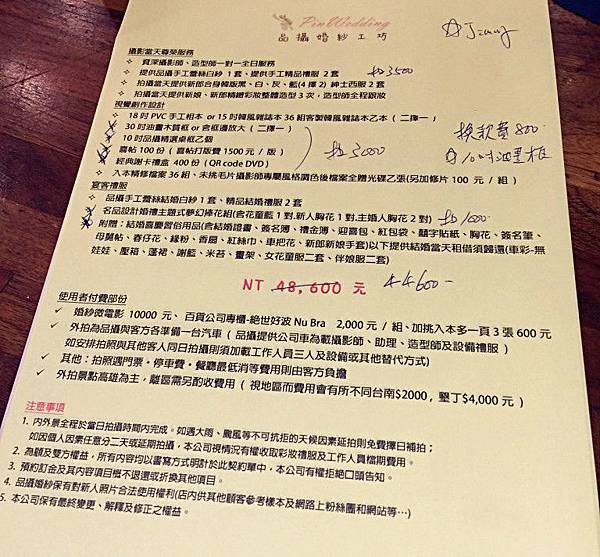 PinWedding
品攝婚紗工坊
攝影當天尊榮服務
資深攝影師、造型師一對一全日服務
提供品攝手工蕾絲白紗 1 套、提供手工精品禮服 2 套
拍攝當天提供新郎合身韓版黑、白、灰、藍(4 擇 2) 紳士西服 2 套
拍攝當天提供新娘、新郎精緻彩妝整體造型 3 次，造型師全程跟妝
視覺創作設計
18 吋 PVC 手工相本 or 15 吋韓風雜誌本 36 組客製韓風雜誌本乙本（ 二擇一 ）
30 吋油畫木質框 or 杏框邊放大（ 二擇一 ）
10 吋品攝精選桌框乙個
喜帖 100 份（ 喜帖打版費 1500 元 / 版 ）
經典謝卡禮盒 400 份 ( QR code DVD )
扣3000
換款費 800
10吋油畫框
入本精修檔案 36 組、未挑毛片攝影師專屬風格調色後檔案全贈光碟乙張(另加修片 100 元 / 組 )
宴客禮服
品攝手工蕾絲結婚白紗 1 套、精品結婚禮服 2 套
扣3500
名品設計婚禮主題式夢幻捧花組(含花童籃 1 對.新人胸花 1 對.主婚人胸花 2 對) 扣1000
附贈：結婚喜慶習俗用品(含結婚證書、簽名簿、禮金簿、迎喜包、紅包袋、囍字貼紙、胸花、簽名筆、
母舅帖、春仔花、緣粉、香扇、紅絲巾、車把花、新郎新娘手套)以下提供結婚當天租借須歸還(車彩-無
娃娃、壓箱、蓬裙、謝籃、米苔、畫架、女花童服二套、伴娘服二套)
NT 48,600 元 44600-
使用者付費部份
婚紗微電影 10000 元、 百貨公司專櫃-絕世好波 Nu Bra 2,000 元 / 組、加挑入本多一頁 3 張 600 元
外拍為品攝與客方各準備一台汽車（ 品攝提供公司車為載攝影師、助理、造型師及設備禮服 ）
如安排拍照與其他客人同日拍攝則須加載工作人員三人及設備或其他替代方式)
其他：拍照遇門票、停車費、餐廳最低消等費用則由客方負擔
外拍景點高雄為主，離區需另酌收費用（ 視地區而費用會有所不同台南$2000 , 墾丁$4,000 元 ）
注意事項
1. 內外景全程於當日拍攝時間內完成。如遇大雨、颱風等不可抗拒的天候因素延拍則免費擇日補拍；
如因個人因素任意分二天或延期拍攝，本公司視情況有權收取彩妝禮服及工作人員檔期費用。
2. 為顧及雙方權益，所有內容均以書寫方式明計於此契約單中，本公司有權拒絕口頭告知。
3. 預約訂金及其內容項目概不退還或折換其他項目。
4. 品攝婚紗保有對新人照片合法使用權利(店內供其他顧客參考樣本及網路上粉絲團和網站等…)
5. 本公司保有最終變更、解釋及修正之權益。